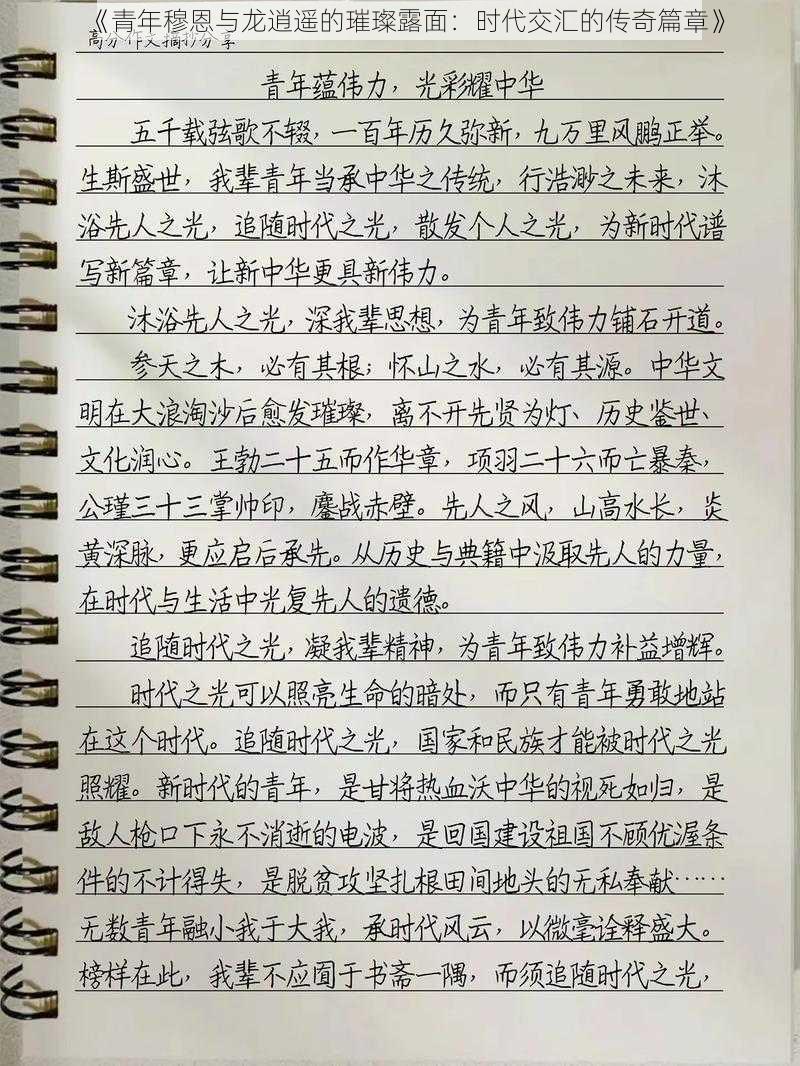 《青年穆恩与龙逍遥的璀璨露面：时代交汇的传奇篇章》
高分作文摘抄分享
青年蕴伟力，光彩耀中华
五千载弦歌不辍，一百年历久弥新，九万里风鹏正举。
生斯盛世，我辈青年当承中华之传统，行浩渺之未来，沐
浴先人之光，追随时代之光，散发个人之光，为新时代谱
写新篇章，让新中华更具新伟力。
沐浴先人之光，深我辈思想，为青年致伟力铺石开道。
参天之木，必有其根；怀山之水，必有其源。中华文
明在大浪淘沙后愈发璀璨，离不开先贤为灯、历史鉴世、
文化润心。王勃二十五而作华章，项羽二十六而亡暴秦，
公瑾三十三掌帅印，鏖战赤壁。先人之风，山高水长，炎
黄深脉，更应启后承先。从历史与典籍中汲取先人的力量，
在时代与生活中光复先人的遗德。
追随时代之光，凝我辈精神，为青年致伟力补益增辉。
时代之光可以照亮生命的暗处，而只有青年勇敢地站
在这个时代。追随时代之光，国家和民族才能被时代之光
照耀。新时代的青年，是甘将热血沃中华的视死如归，是
敌人枪口下永不消逝的电波，是回国建设祖国不顾优渥条
件的不计得失，是脱贫攻坚扎根田间地头的无私奉献……
无数青年融小我于大我，承时代风云，以微毫诠释盛大。
榜样在此，我辈不应囿于书斋一隅，而须追随时代之光，